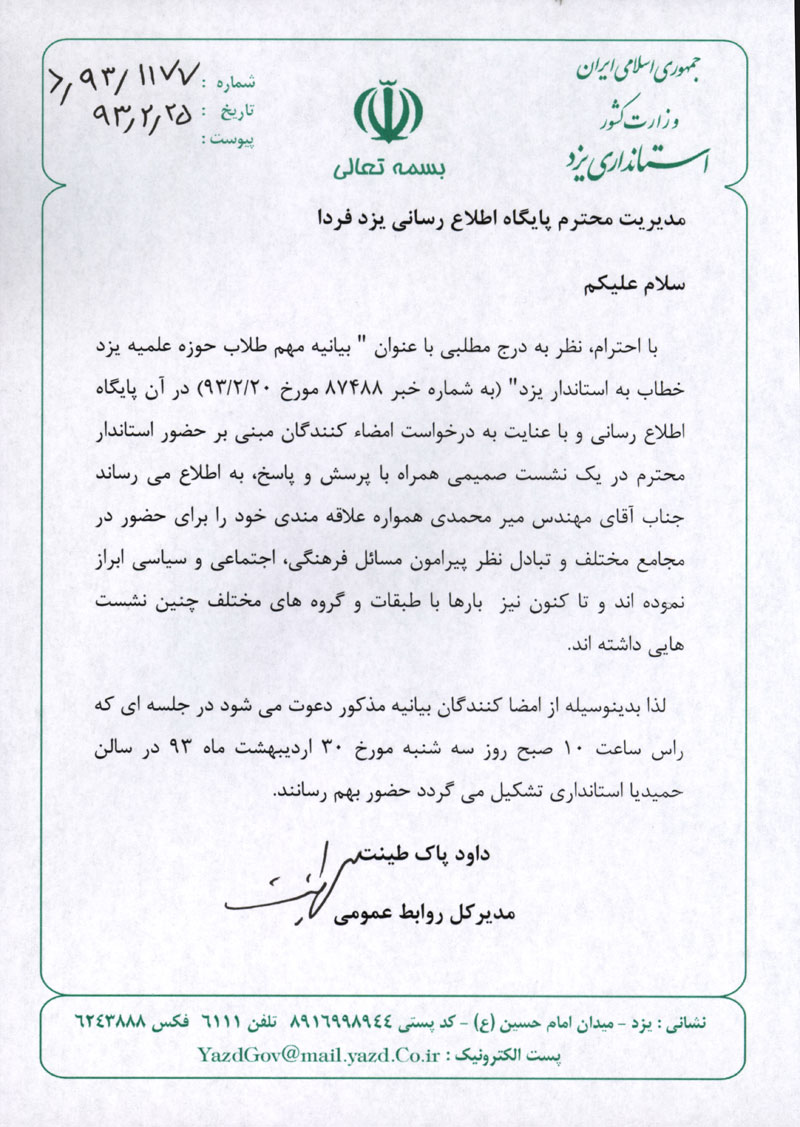 جمهوری اسلامی ایران
وزارت کشور
استانداری یزد
بسمه تعالی
شماره : ۹۳/۱۱۷۷
تاریخ : ۹۳,۲,۲۵
پیوست :
مدیریت محترم پایگاه اطلاع رسانی یزد فردا
سلام علیکم
با احترام، نظر به درج مطلبی با عنوان " بیانیه مهم طلاب حوزه علمیه یزد
خطاب به استاندار یزد" (به شماره خبر ۸۷۴۸۸ مورخ ۹۳/۲/۲۰) در آن پایگاه
اطلاع رسانی و با عنایت به درخواست امضاء کنندگان مبنی بر حضور استاندار
محترم در یک نشست صمیمی همراه با پرسش و پاسخ، به اطلاع می رساند
جناب آقای مهندس میر محمدی همواره علاقه مندی خود را برای حضور در
مجامع مختلف و تبادل نظر پیرامون مسائل فرهنگی، اجتماعی و سیاسی ابراز
نموده اند و تا کنون نیز بارها با طبقات و گروه های مختلف چنین نشست
هایی داشته اند.
لذا بدینوسیله از امضا کنندگان بیانیه مذکور دعوت می شود در جلسه ای که
راس ساعت ۱۰ صبح روز سه شنبه مورخ ۳۰ اردیبهشت ماه ۹۳ در سالن
حمیدیا استانداری تشکیل می گردد حضور بهم رسانند.
داود پاک طینت
مدیرکل روابط عمومی
نشانی : یزد - میدان امام حسین (ع) - کد پستی ۸۹۱۶۹۹۸۹۴۴ تلفن ۶۱۱۱ فکس ۶۲۴۳۸۸۸
پست الکترونیک : YazdGov@mail.yazd.Co.ir